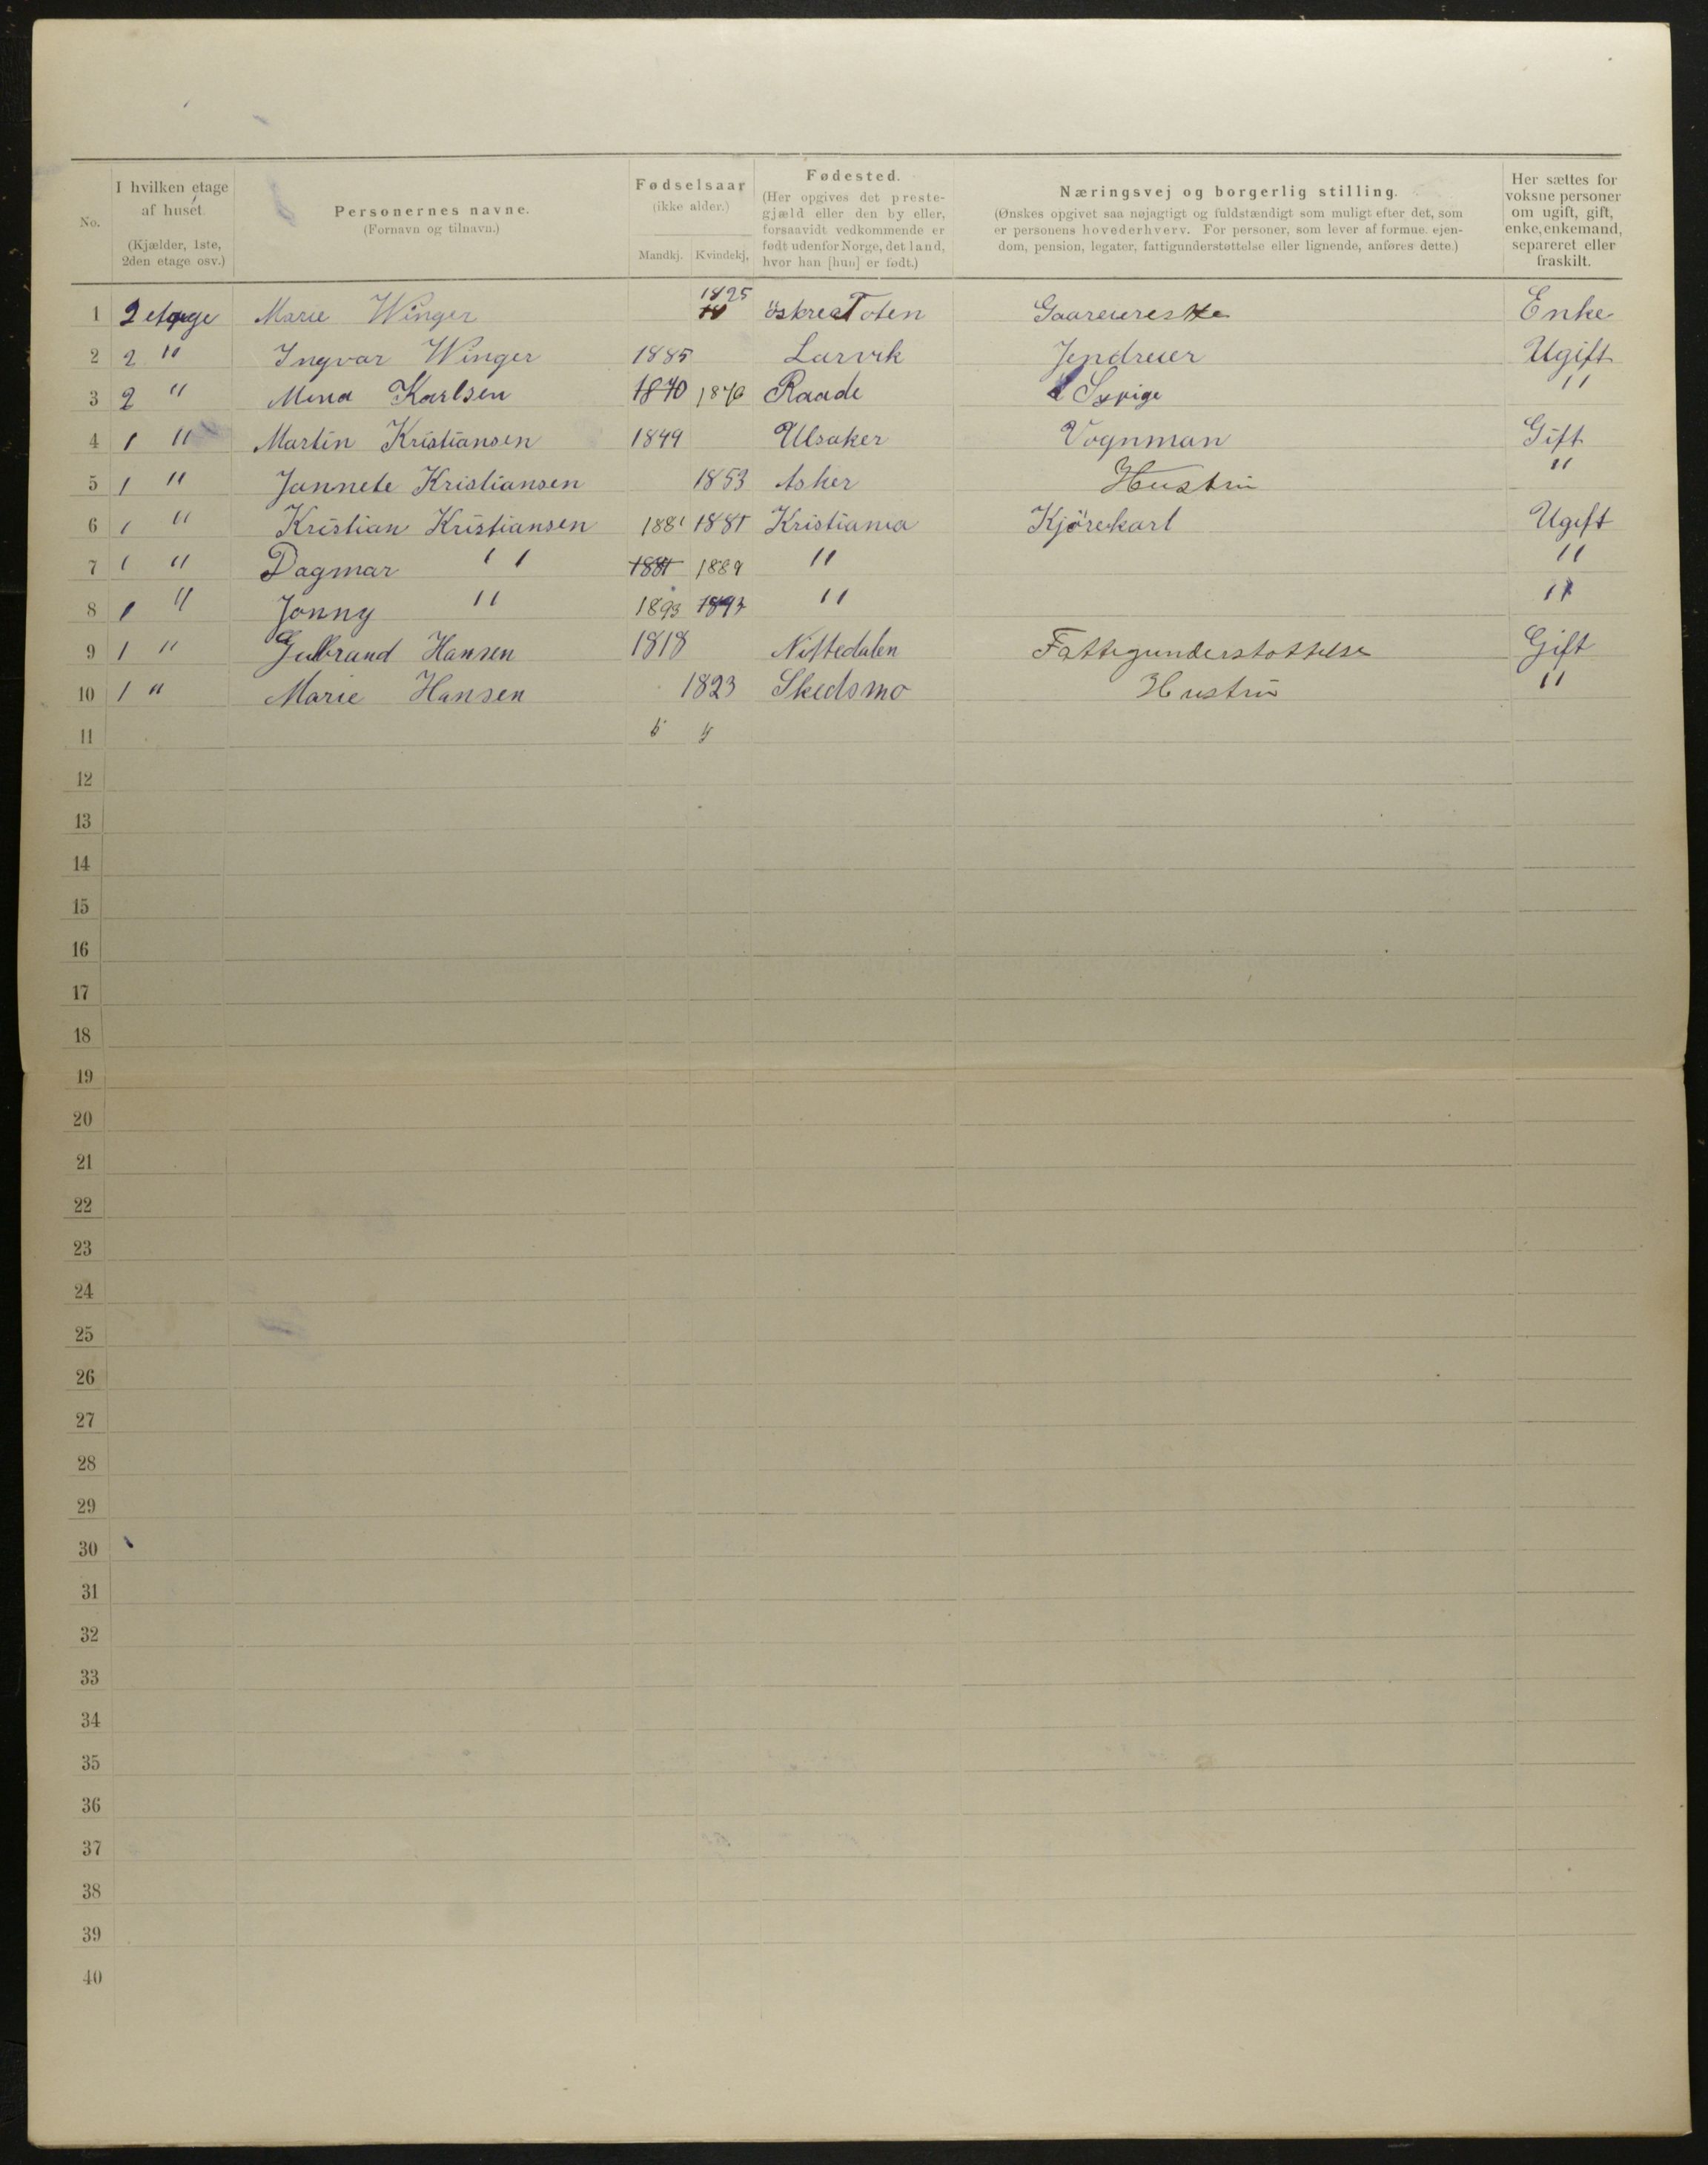 No.
I hvilken etage
af huset.
(Kjælder, 1ste,
2den etage osv.)
Personernes navne.
(Fornavn og tilnavn.)
Fødselsaar
(ikke alder.)
Mandkj. Kvindekj.
Fødested.
(Her opgives det preste-
gjæld eller den by eller,
forsaavidt vedkommende er
født udenfor Norge, det land,
hvor han [hun] er født.)
Næringsvej og borgerlig stilling.
(Ønskes opgivet saa nøjagtigt og fuldstændigt som muligt efter det, som
er personens hovederhverv. For personer, som lever af formue, ejen-
dom, pension, legater, fattigunderstøttelse eller lignende, anføres dette.)
Her sættes for
voksne personer
om ugift, gift,
enke, enkemand,
separeret eller
fraskilt.
1 2 etage Marie Winger 1825 Toten Enke
2 2 " Ingvar Winger 1885 Larvik Ugift
3 2 " Mina Karlsen 1870 1870 Raade "
4 1 " Martin Kristiansen 1849 Ulsaker Vognman Gift
5 1 " Jannete Kristiansen 1853 Asker Hustru "
6 1 " Kristian Kristiansen 1881 1881 Kristiania Kjörekarl Ugift
7 1 " Dagmar " 1881 1889 " "
8 1 " Jonny " 1893 1893 " "
9 1 " Gulbrand Hansen 1818 Nittedalen Fattigunderstottelse Gift
10 1 " Marie Hansen 1823 Skedsmo Hustru "
11 5 5
12
13
14
15
16
17
18
19
20
21
22
23
24
25
26
27
28
29
30
31
32
33
34
35
36
37
38
39
40